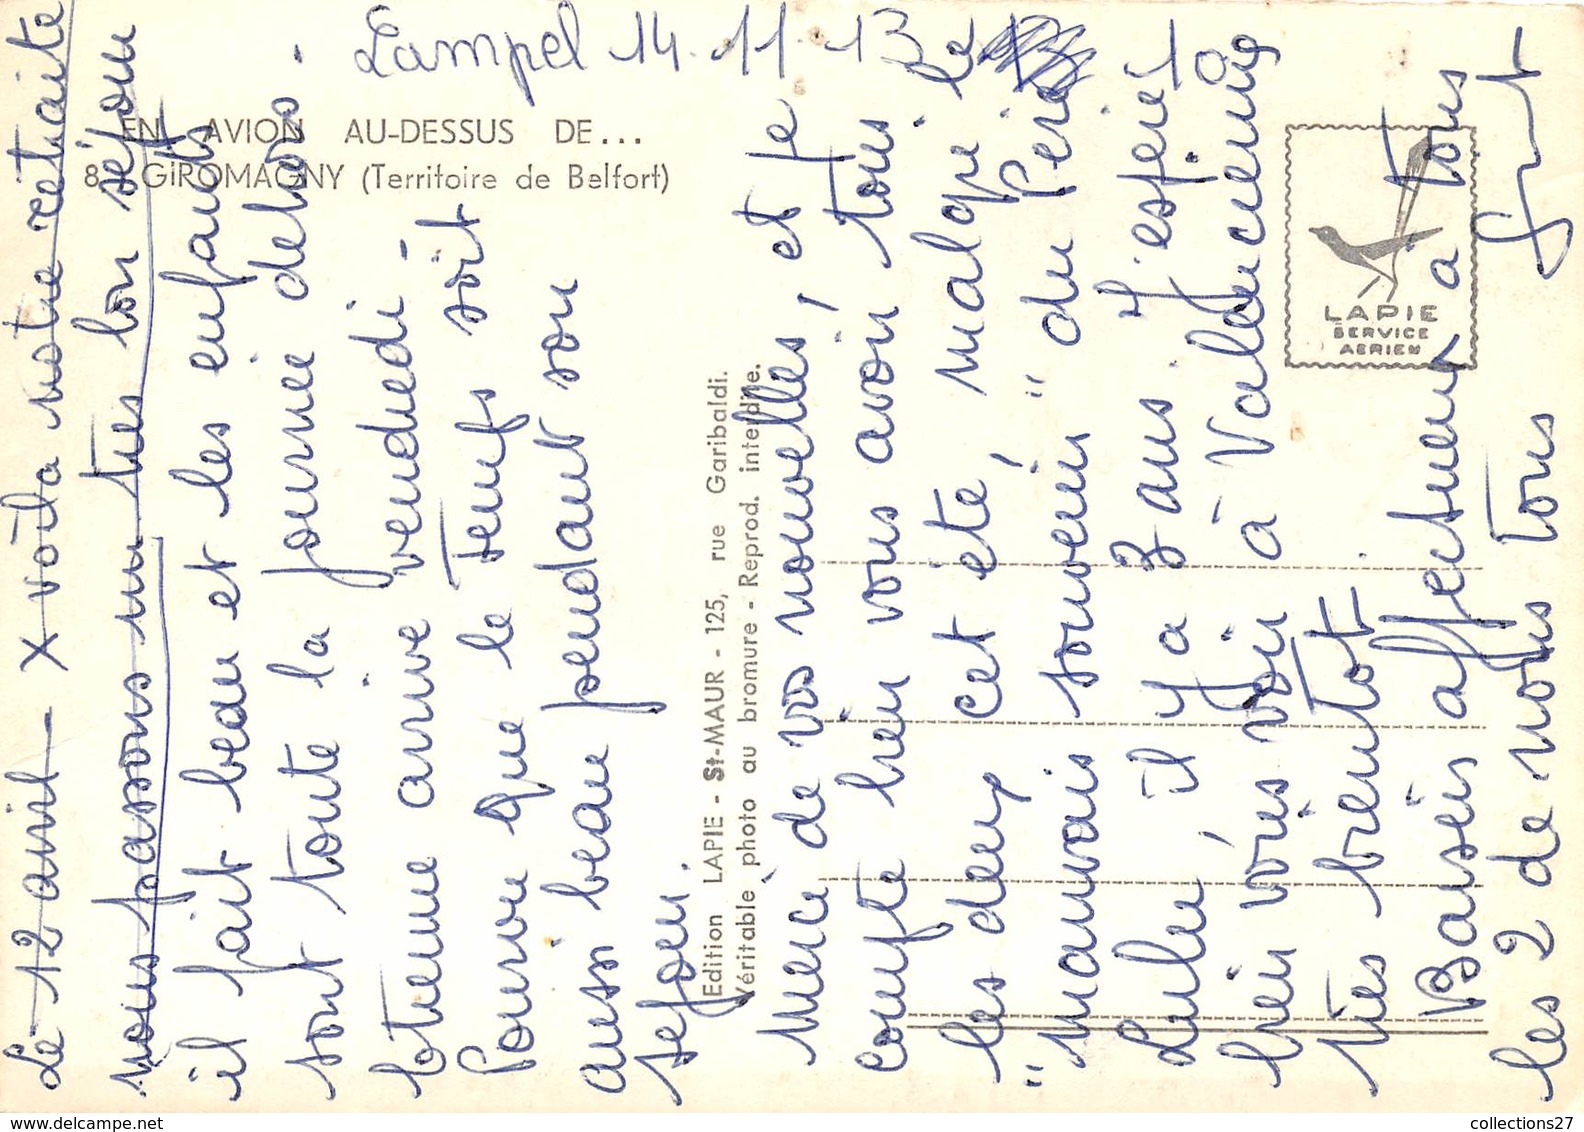 Lampel 14.11.13
EN AVION AU-DESSUS DE...
8 GIROMAGNY (Territoire de Belfort)
Le 12 avril - X voila notre retraite
nous passons un très bon séjour
il fait beau et les enfants
sont toute la journée dehors.
arrive vendredi -
Pourvu que le temps soit
aussi beau pendant son
sejour.
Edition LAPIE - St-MAUR - 125, rue Garibaldi.
Véritable photo au bromure - Reprod. interdite.
Merci de vos nouvelles, et je
compte bien vous avoir tous
les deux, cet été, malgre le
"mauvais souvenir" du Perie
Lulu, il y a 3 ans. J'espère
bien vous voir à Valdoie
très bientot.
Baisers affectueux à tous
les 2 de nous tous
LAPIE
SERVICE
AERIEN
collections27